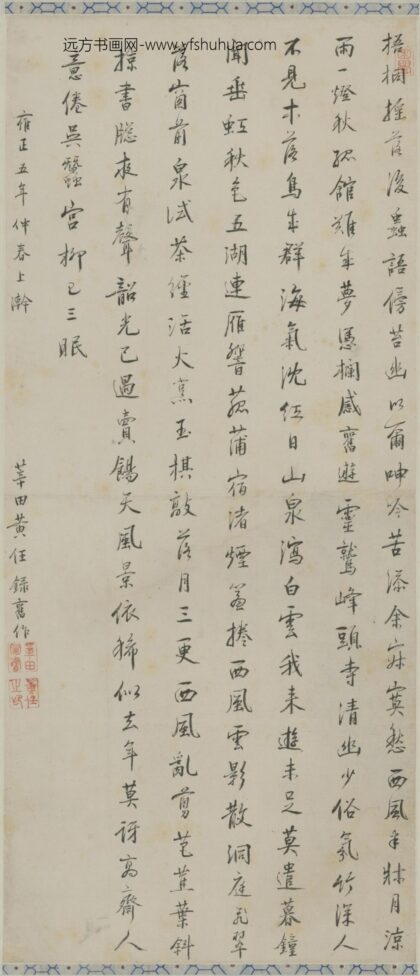 远方书画网-www.yfshuhua.com
梧桐摇落後蟲語傍苔幽以爾呻吟苦添余寂寞愁西風半牀月涼
雨一燈秋孤館難成夢憑欄感舊遊靈鷲峰頭寺清幽少俗氛竹深人
不見木落鳥成群海氣沈紅日山泉瀉白雲我来遊未足莫遣暮鐘
聞垂虹秋色五湖連雁響菰蒲宿渚煙捲西風雲影散洞庭飛翠
落窗前泉試茶經活火烹玉棋敲落月三更西風亂剪芭蕉葉斜
掠書牕夜有聲韶光已過賣餳天風景依稀似去年莫訝高齋人
意倦吳蠶宮柳已三眠
雍正五年仲春上澣
莘田黄任録舊作